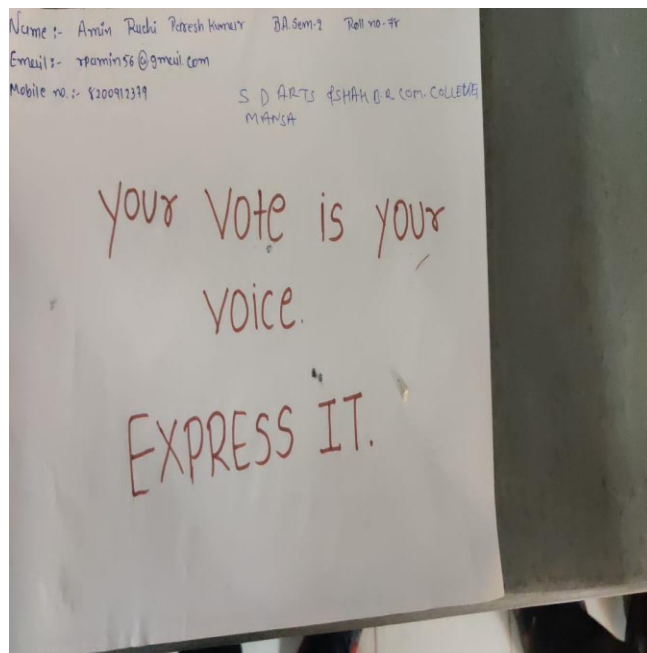 Name :- Amin Ruchi Pareshkumar BA.Sem-2 Roll no-78
Email :- rpamin56@gmail.com
Mobile no.:- 8200912379 S D ARTS & SHAH B.R COM. COLLEGE
MANSA
your Vote is your
voice.
EXPRESS IT.